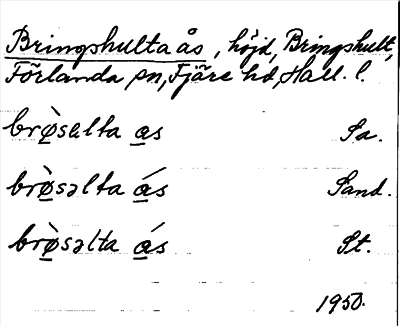 Bringshulta ås, höjd, Bringshult,
Förlanda sn, Fjäre hd, Hall. l.
brø̀salta as Sa.
brø̀səlta ás Sand.
brø̀səlta ás St.
1950.